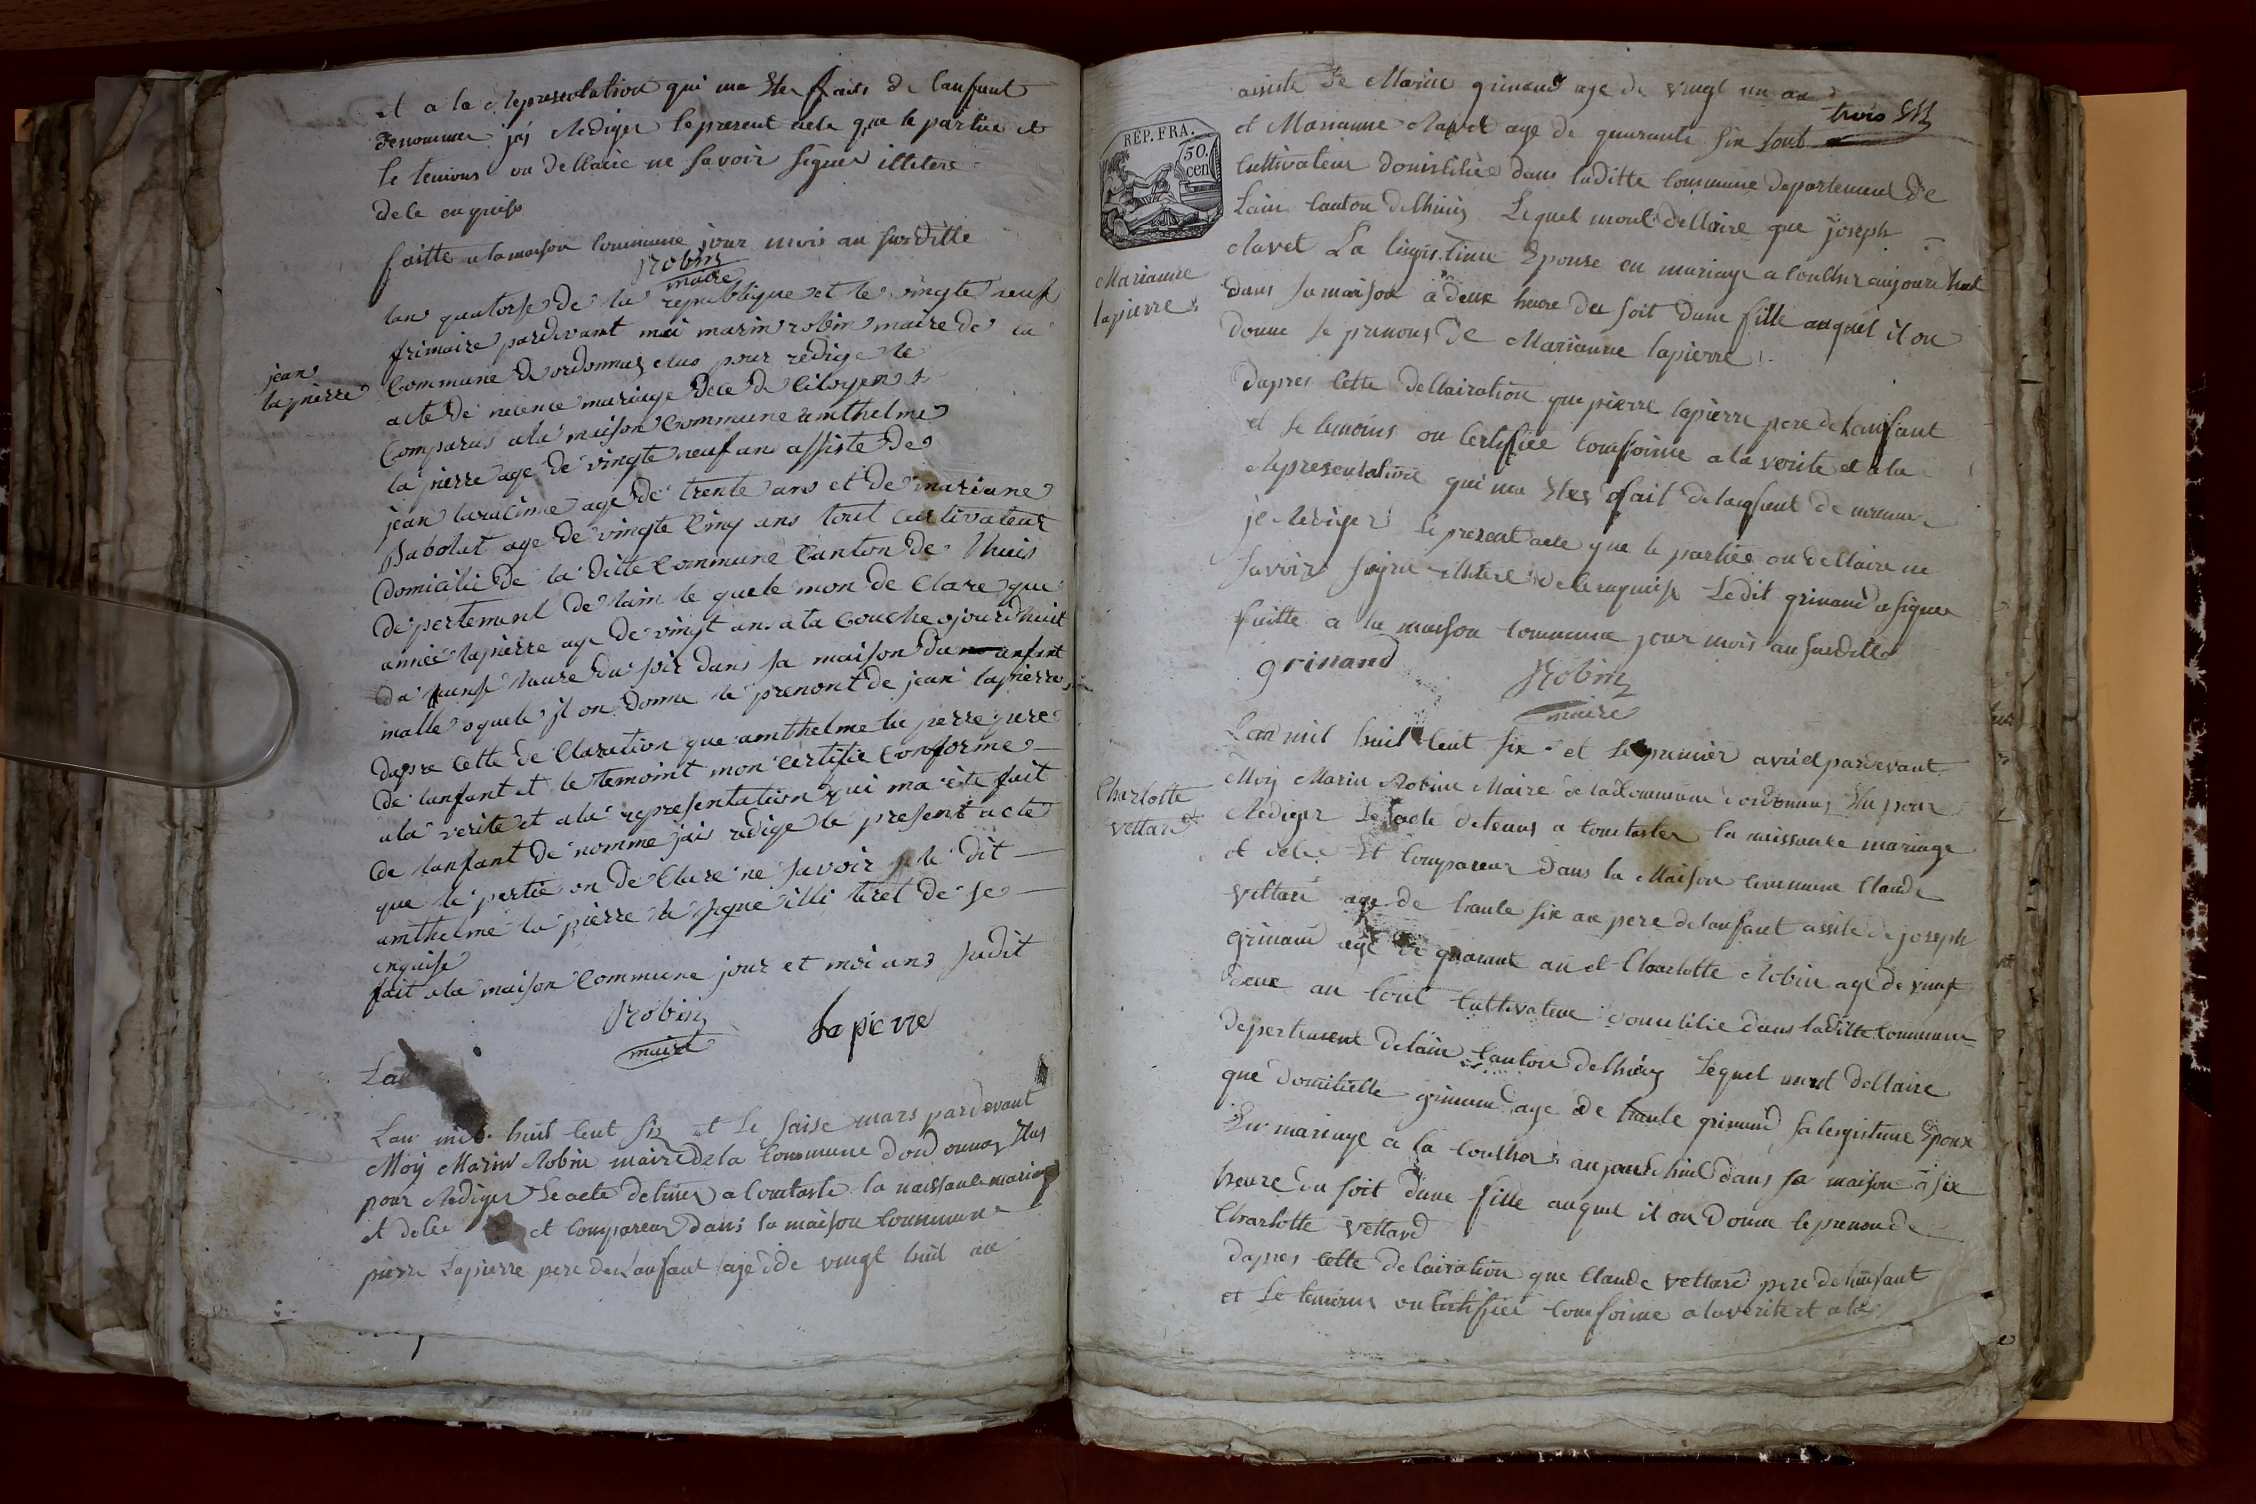 et a la Representation qui ma Ete faits de lanfant
denommer jéj Rediger le present acte que le partie et
le temions on dellaire ne savoir signer illetere
dele enquise
faitte a la maison Commune jour mois an surditte
Robin
maire
lan quatorse de la republique et le vingte neuf
frimaire pardevant moi marin robin maire de la
jean
la pierre
Commune dordonnas elus pour redige le
acte de nicence mariage dece de Citoyen
Comparus a la maison Commune amthelme
la pierre age de vingte neuf ans assiste de
jean laracine age de trente ans et de mariane
pabolat age de vingte cinq ans tout cultivateur
Domicilie de la ditte Commune Canton de lhuis
de pertement de lain le quele mon de Clare que
année lapierre age de vingt ans a la couche ojourdhuit
da heure du soir dans sa maison du anfant
malle oquele jl on donne le prenont de jean lapierre
dapre cette de Claration que amthelme la pierre pere
de lanfant et le temoint mon certifie conforme
a la verite et a la representation qui ma ete fait
de lanfant de nomme jai redige le present acte
que le pertie on de Clare ne savoir le dit
amthelme la pierre le signe illi tiret de se
enquise
fait ala maison Commune jour et moi ans sudit
Robin
maire
lapierre
Lan
Lan mil huit cent six et le saise mars pardevant
Moij Marin Robin maire de la Commune dordonnas Elus
pour Rediger Le acte detines a Contaste la naissance mariage
et dele et Compareus dans la maison Commune
pierre Lapierre pere de Lanfant age de vingt huit an
trois
assiste de Marie grimand age de vingt un an
et Marianne Ravet age de quarante six tout
REP. FRA.
50.
cen
Cultivateur domisilliee dans laditte Commune departement de
Lain Canton delhuis Lequel mont dellaire que joseph
Marianne
lapierre
Ravet La legistime Epouse en mariage a Coucher aujourdhui
dans sa maison a deux heure du soit dune fille auquel il on
donne le prenous de Marianne lapierre
dapres Cette dellairation que pierre lapierre pere de Lanfant
et le temoins on Certifiee Comforme a la verite et a la
Representation qui ma Etes fait de lanfant de nommer
je Rediger le present acte que le partiee on dellaire ne
savoir signe illitere dele enquise Ledit grimand a signer
faitte a la maison Commune jour mois an surditte
grimand
Robin
maire
Lan mil huit Cent six et le premier avril pardevant
Charlotte
vettard
Moij Marin Robin Maire de la Commune dordonnas Elu pour
Rediger Le acte detenus a Contaster la naissance mariage
et dele Et Compareus dans la Maison Commune Claude
vettard age de trante six an pere de lanfant assite de joseph
grimand age de quarant an et Charlotte Robin age de vingt
deux an tout Cultivateur domicilie dans laditte Commune
departement delain Canton delhuis Lequel mont dellaire
que domitille grimand age de trante grimand sa legistime Epoux
En mariage a la Coucher aujourdhuit dans sa maison a six
heure du soit dune fille auquel il on donne le prenon de
Charlotte vettard
dapres Cette delairation que Claude vettard pere de lanfant
et Le temoins on Certifiee Comforme a la verite et a la